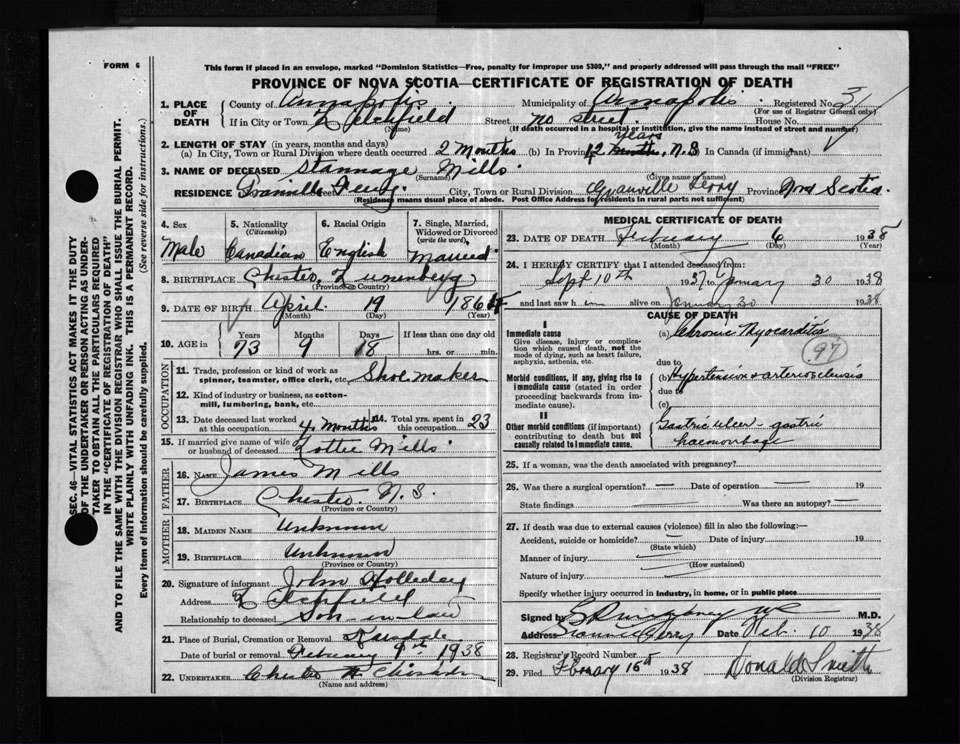 FORM 6
This form if placed in an envelope, marked "Dominion Statistics—Free, penalty for improper use $300," and properly addressed will pass through the mail "FREE"
PROVINCE OF NOVA SCOTIA—CERTIFICATE OF REGISTRATION OF DEATH
1. PLACE OF DEATH
County of Annapolis Municipality of Annapolis Registered No. 31
(For use of Registrar General only)
If in City or Town Litchfield Street no street House No.
(Name) (If death occurred in a hospital or institution, give the name instead of street and number)
2. LENGTH OF STAY (in years, months and days)
(a) In City, Town or Rural Division where death occurred 2 Months (b) In Province 12 months years, N.S (c) In Canada (if immigrant)
3. NAME OF DECEASED Stannage Mills
(Surname) (Given name or names)
RESIDENCE Granville Ferry City, Town or Rural Division Granville Ferry Province Nova Scotia
(Residence means usual place of abode. Post Office Address for residents in rural parts not sufficient)
4. Sex Male
5. Nationality (Citizenship) Canadian
6. Racial Origin English
7. Single, Married, Widowed or Divorced (write the word) Married
8. BIRTHPLACE Chester Lunenberg
(Province or Country)
9. DATE OF BIRTH April 19 1864
(Month) (Day) (Year)
10. AGE in Years Months Days If less than one day old
73 9 18 hrs. or min.
OCCUPATION
11. Trade, profession or kind of work as spinner, teamster, office clerk, etc. Shoe maker
12. Kind of industry or business, as cotton-mill, lumbering, bank, etc.
13. Date deceased last worked at this occupation 4 months 14. Total yrs. spent in this occupation 23
15. If married give name of wife or husband of deceased Lottie Mills
FATHER
16. NAME James Mills
17. BIRTHPLACE Chester N.S.
(Province or Country)
MOTHER
18. MAIDEN NAME Unknown
19. BIRTHPLACE Unknown
(Province or Country)
20. Signature of informant John Holleday
Address Litchfield
Relationship to deceased Son-in-law
21. Place of Burial, Cremation or Removal
Date of burial or removal February 9th 1938
22. UNDERTAKER Chester
(Name and address)
MEDICAL CERTIFICATE OF DEATH
23. DATE OF DEATH February 6 1938
(Month) (Day) (Year)
24. I HEREBY CERTIFY that I attended deceased from:
Sept 10th 1937 to January 30 1938
and last saw him alive on January 30 1938
CAUSE OF DEATH
I
Immediate cause
Give disease, injury or complication which caused death, not the mode of dying, such as heart failure, asphyxia, asthenia, etc.
(a) Chronic Myocarditis
97
due to
Morbid conditions, if any, giving rise to immediate cause (stated in order proceeding backwards from immediate cause).
(b) Hypertension & arterosclerosis
due to
(c)
II
Other morbid conditions (if important) contributing to death but not causally related to immediate cause.
Gastric ulcer - gastric haemorrhage
25. If a woman, was the death associated with pregnancy?
26. Was there a surgical operation? — Date of operation — 19
State findings Was there an autopsy? —
27. If death was due to external causes (violence) fill in also the following:—
Accident, suicide or homicide? — Date of injury 19
(State which)
Manner of injury
(How sustained)
Nature of injury
Specify whether injury occurred in industry, in home, or in public place
Signed by M.D.
Address Granville Ferry Date Feb. 10 1938
28. Registrar's Record Number
29. Filed February 16th 1938 Donald Smith
(Division Registrar)
SEC. 46—VITAL STATISTICS ACT MAKES IT THE DUTY
OF THE UNDERTAKER OR PERSON ACTING AS UNDERTAKER TO OBTAIN ALL THE PARTICULARS REQUIRED
IN THE "CERTIFICATE OF REGISTRATION OF DEATH"
AND TO FILE THE SAME WITH THE DIVISION REGISTRAR WHO SHALL ISSUE THE BURIAL PERMIT.
WRITE PLAINLY WITH UNFADING INK. THIS IS A PERMANENT RECORD.
Every item of information should be carefully supplied. (See reverse side for instructions.)